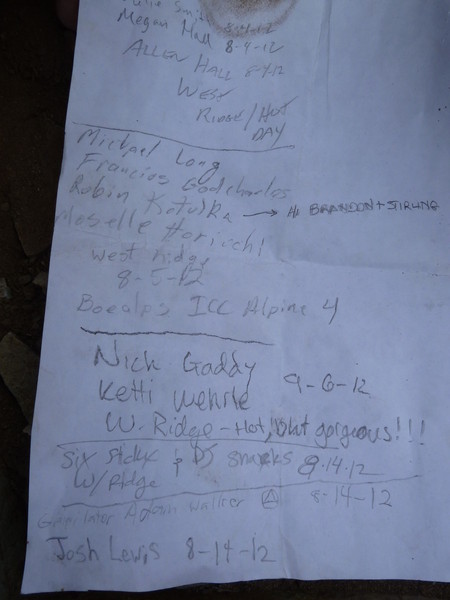 Julie Smith 8-4-12
Megan Hall 8-4-12
ALLEN HALL 8-4-12
West
Ridge/Hot
DAY
Michael Long
Francios Godcharles
Robin Katulka → Hi BRANDON + STIRLING
Moselle Horiuchi
West Ridge
8-5-12
Boealps ICC Alpine 4
Nick Gaddy
Ketti Wehrle 9-6-12
W. Ridge - Hot, but gorgeous!!!
Six Stckx & DJ snacks 8.14.12
W/Ridge
Adam Walker Ⓐ 8-14-12
Josh Lewis 8-14-12